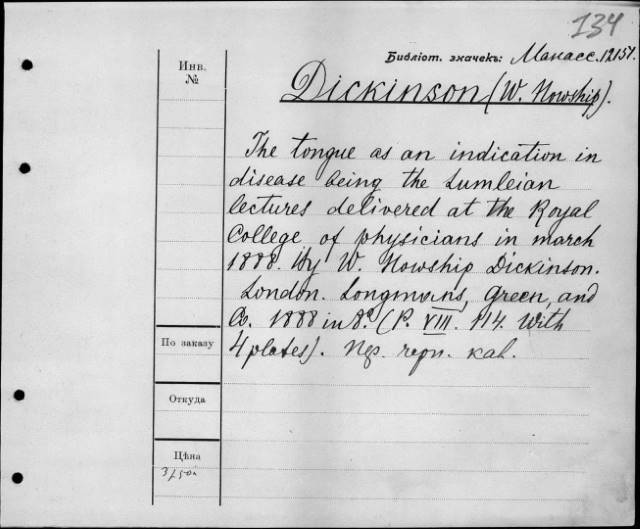 134
Библіот. значекъ: Манасс. 12151.
Инв.
№
Dickinson (W. Howship).
The tongue as an indication in
disease being the Lumleian
lectures delivered at the Royal
College of physicians in march
1888. by W. Howship Dickinson.
London. Longmans, Green, and
Co. 1888 in 8º (P. VIII. 114. With
4 plates). Пер. черн. кал.
По заказу
Откуда
Цѣна